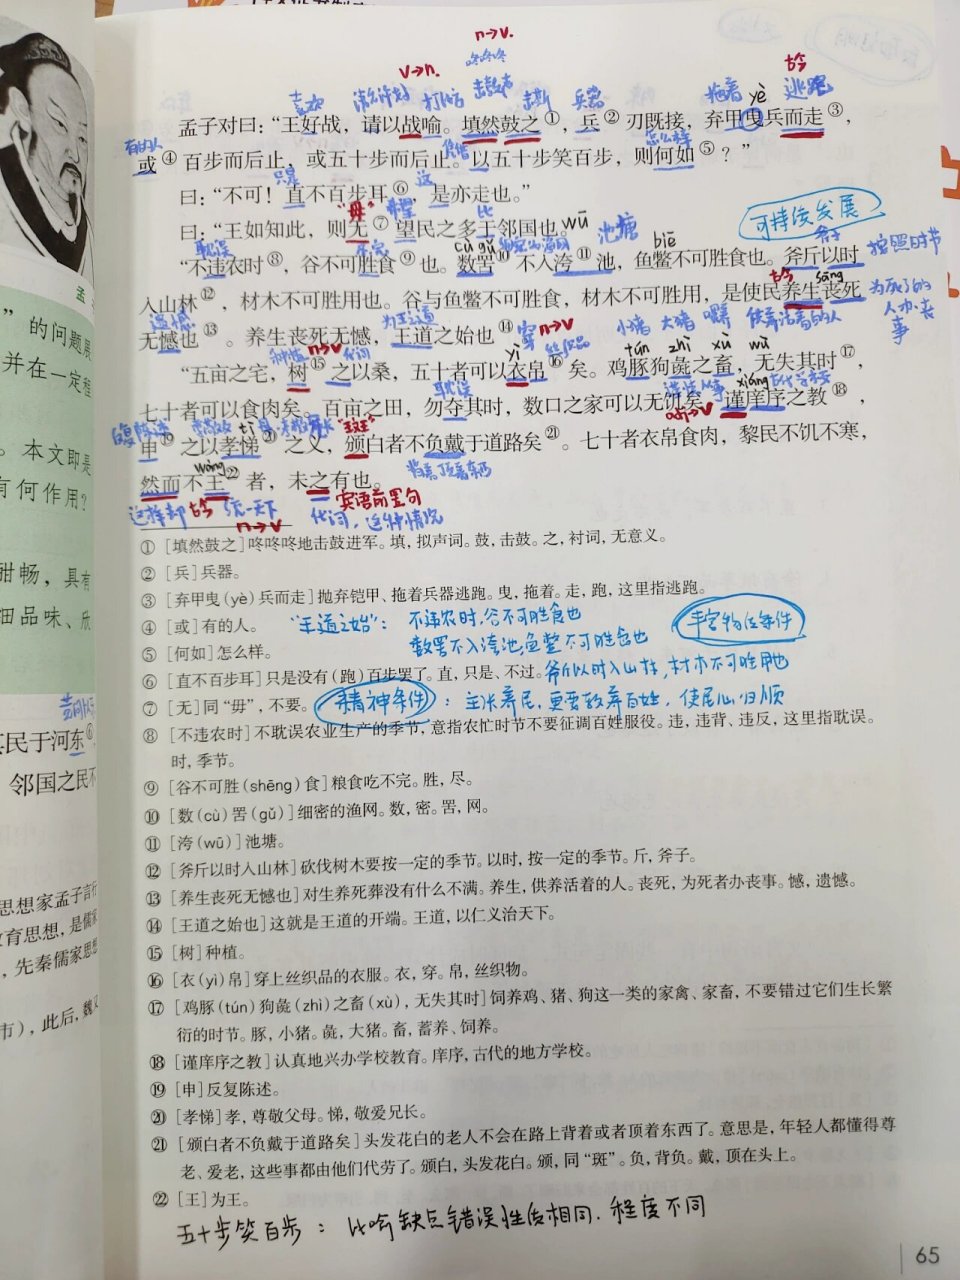 n→v.
v→n.
咚咚咚
古今
喜欢
请允许我
打比方
击鼓声
击鼓
兵器
拖着
yè
逃跑
孟子对曰：“王好战，请以战喻。填然鼓之①，兵②刃既接，弃甲曳兵而走③，
有的人
凭借
怎么样
或④百步而后止，或五十步而后止。以五十步笑百步，则何如⑤？”
只是
这
曰：“不可！直不百步耳⑥，是亦走也。”
“毋”
希望
比
曰：“王如知此，则无⑦望民之多于邻国也。
wū
可持续发展
耽误
cù gǔ
池塘
biē
斧子
“不违农时⑧，谷不可胜食⑨也。数罟⑩不入洿⑪池，鱼鳖不可胜食也。斧斤以时
按照时节
古今
sāng
入山林⑫，材木不可胜用也。谷与鱼鳖不可胜食，材木不可胜用，是使民养生丧死
为死了的
人办丧
事
遗憾
为王之道
无憾也⑬。养生丧死无憾，王道之始也⑭。
穿 n→v
小猪
大猪
供养活着的人
种植
n→v
代词
yì
丝织品
tún
zhì
xù
wù
“五亩之宅，树⑮之以桑，五十者可以衣帛⑯矣。鸡豚狗彘之畜，无失其时⑰，
耽误
xiáng
七十者可以食肉矣。百亩之田，勿夺其时，数口之家可以无饥矣。谨庠序之教⑱，
反复陈述
tì
“斑”
adj→v
申⑲之以孝悌⑳之义，颁白者不负戴于道路矣㉑。七十者衣帛食肉，黎民不饥不寒，
wàng
然而不王㉒者，未之有也。
这样却
古今
统一天下
n→v
宾语前置句
代词，这种情况
①［填然鼓之］咚咚咚地击鼓进军。填，拟声词。鼓，击鼓。之，衬词，无意义。
②［兵］兵器。
③［弃甲曳（yè）兵而走］抛弃铠甲、拖着兵器逃跑。曳，拖着。走，跑，这里指逃跑。
④［或］有的人。
“王道之始”：不违农时，谷不可胜食也
丰富物质条件
数罟不入洿池，鱼鳖不可胜食也
⑤［何如］怎么样。
⑥［直不百步耳］只是没有（跑）百步罢了。直，只是、不过。
斧斤以时入山林，材木不可胜用也
⑦［无］同“毋”，不要。
精神条件：主张养民，更要教养百姓，使民心归顺
⑧［不违农时］不耽误农业生产的季节，意指农忙时节不要征调百姓服役。违，违背、违反，这里指耽误。
时，季节。
⑨［谷不可胜（shēng）食］粮食吃不完。胜，尽。
⑩［数（cù）罟（gǔ）］细密的渔网。数，密。罟，网。
⑪［洿（wū）］池塘。
⑫［斧斤以时入山林］砍伐树木要按一定的季节。以时，按一定的季节。斤，斧子。
⑬［养生丧死无憾也］对生养死葬没有什么不满。养生，供养活着的人。丧死，为死者办丧事。憾，遗憾。
⑭［王道之始也］这就是王道的开端。王道，以仁义治天下。
⑮［树］种植。
⑯［衣（yì）帛］穿上丝织品的衣服。衣，穿。帛，丝织物。
⑰［鸡豚（tún）狗彘（zhì）之畜（xù），无失其时］饲养鸡、猪、狗这一类的家禽、家畜，不要错过它们生长繁
衍的时节。豚，小猪。彘，大猪。畜，蓄养、饲养。
⑱［谨庠序之教］认真地兴办学校教育。庠序，古代的地方学校。
⑲［申］反复陈述。
⑳［孝悌］孝，尊敬父母。悌，敬爱兄长。
㉑［颁白者不负戴于道路矣］头发花白的老人不会在路上背着或者顶着东西了。意思是，年轻人都懂得尊
老、爱老，这些事都由他们代劳了。颁白，头发花白。颁，同“斑”。负，背负。戴，顶在头上。
㉒［王］为王。
五十步笑百步：比喻缺点错误性质相同，程度不同
65
孟
”的问题展
并在一定程
。本文即是
有何作用？
甜畅，具有
细品味、欣
其民于河东⑥
邻国之民不
思想家孟子言行
教育思想，是儒
，先秦儒家思想
市），此后，魏